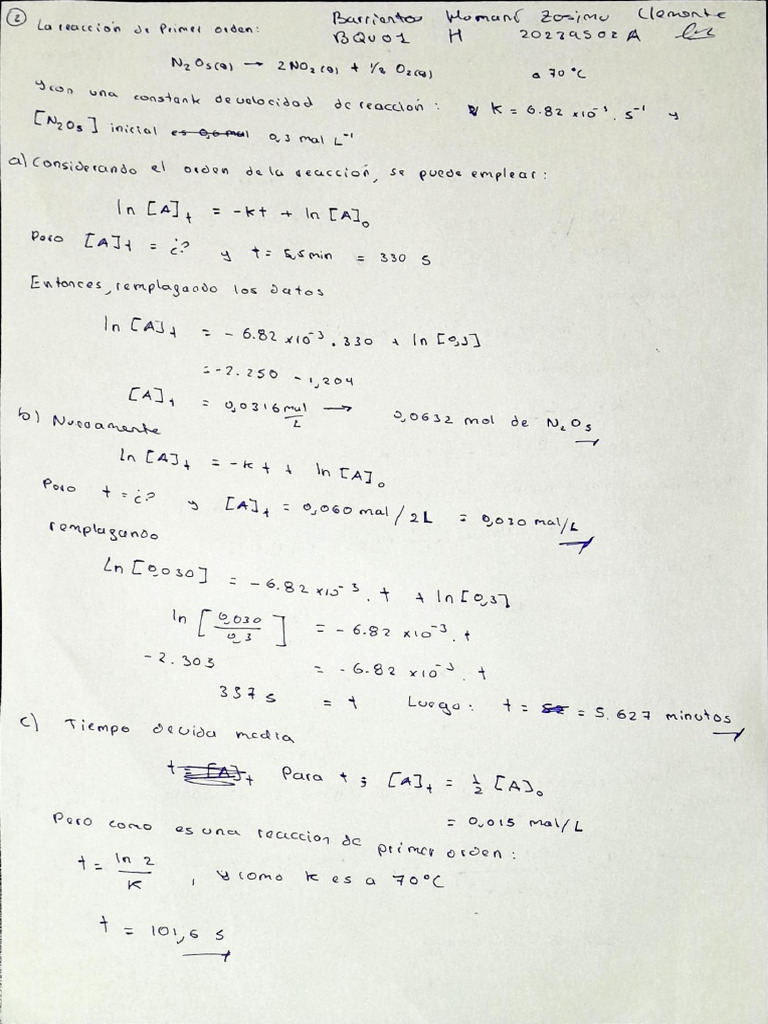 ② La reacción de Primer orden: Barrientos Humaní Zosimo Clemente
BQU01 H 20239502A
N₂O₅(g) → 2NO₂(g) + 1/2 O₂(g) a 70°C
y con una constante de velocidad de reacción: K = 6.82 x10⁻³ . s⁻¹ y
[N₂O₅] inicial 0,3 mol L⁻¹
a) Considerando el orden de la reacción, se puede emplear:
ln [A]t = -Kt + ln [A]₀
Para [A]t = ¿? y t = 5,5 min = 330 s
Entonces, remplazando los datos
ln [A]t = - 6.82 x10⁻³ . 330 + ln [0,3]
= -2.250 - 1,204
[A]t = 0,0316 mol/L → 0,0632 mol de N₂O₅
b) Nuevamente
ln [A]t = -Kt + ln [A]₀
Para t = ¿? y [A]t = 0,060 mol / 2L = 0,030 mol/L
remplazando
Ln [0,030] = - 6.82 x10⁻³ . t + ln [0,3]
ln [0,030/0,3] = - 6.82 x10⁻³ . t
-2.303 = - 6.82 x10⁻³ . t
337 s = t Luego: t = = 5.627 minutos
c) Tiempo de vida media
Para t ; [A]t = 1/2 [A]₀
= 0,015 mol/L
Pero como es una reaccion de primer orden:
t = ln 2/K , y como K es a 70°C
t = 101,6 s